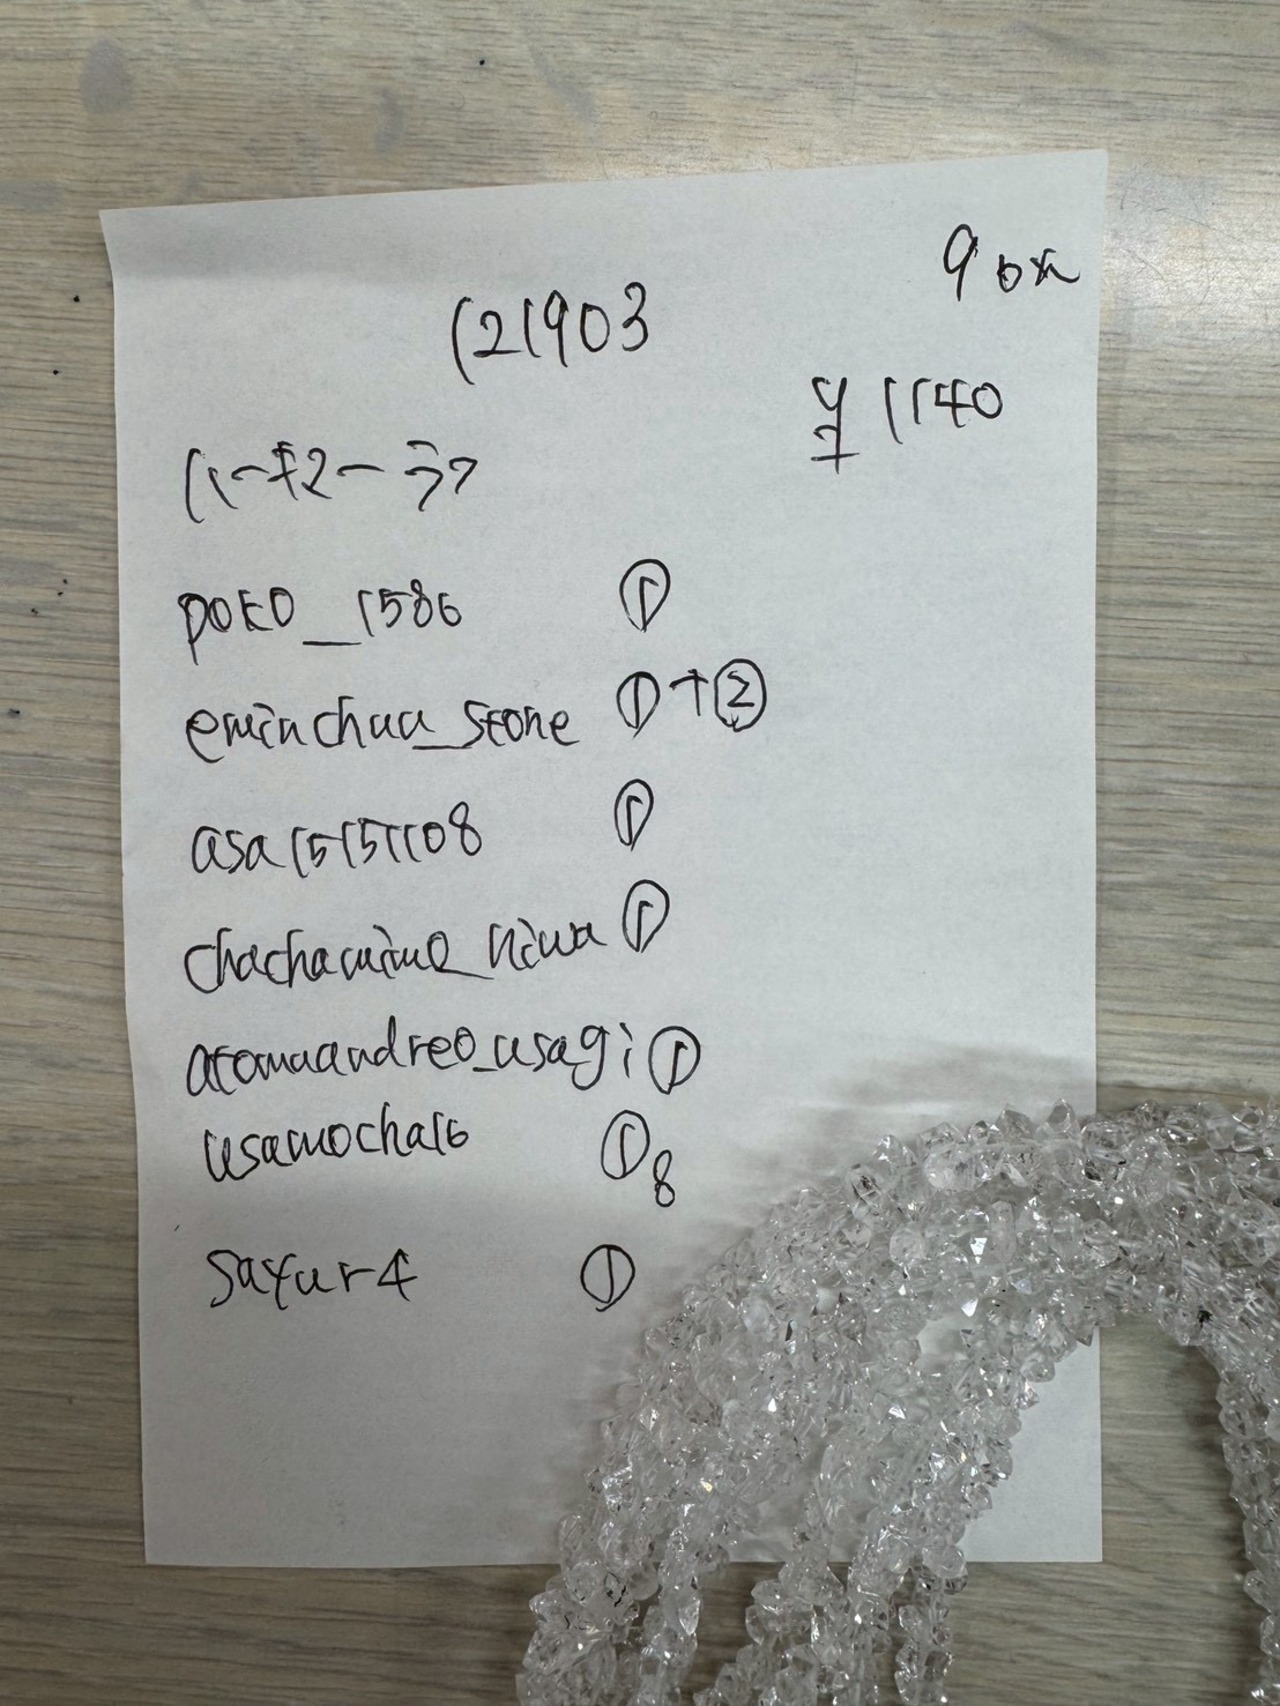 9 box
121903
¥ 1140
ハーキマーラフ
poko_1586 ①
eminchaa_stone ①+②
asa15151108 ①
chachamimo_niwa ①
atomuandreo_usagi ①
usamocha16 ①8
sayur4 ①